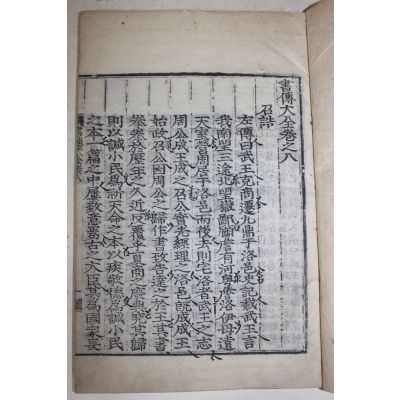 書傳大全卷之八
召誥
左傳曰武王克商遷九鼎于洛邑史記載武王言
我南望三途北望嶽鄙顧詹有河粤詹洛伊毋遠
天室營周居于洛邑而後去則宅洛者武王之志
周公成王成之召公實先經理之洛邑旣成成王
始政召公因周公之歸作書致告達之於王其書
拳拳於歷年之久近反覆乎夏商之廢興究其歸
則以諴小民爲祈天命之本以疾敬德爲諴小民
之本一篇之中屢致意焉古之大臣其爲國家長